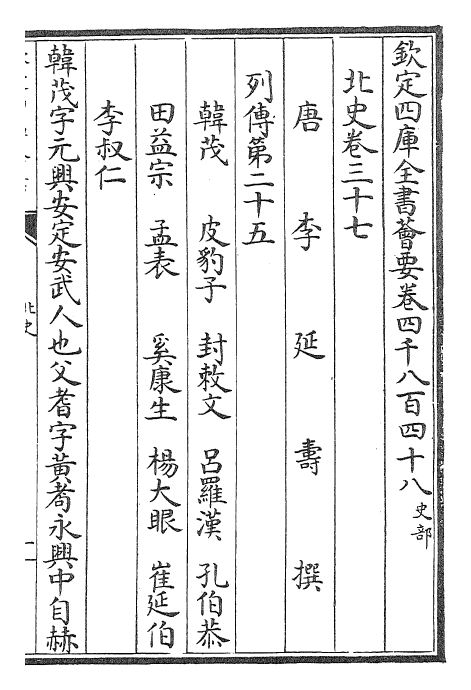 欽定四庫全書薈要卷四千八百四十八史部
北史卷三十七
唐李延壽撰
列傳第二十五
韓茂 皮豹子 封敕文 呂羅漢 孔伯恭
田益宗 孟表 奚康生 楊大眼 崔延伯
李叔仁
韓茂字元興安定安武人也父耆字黃耇永興中自赫
北史